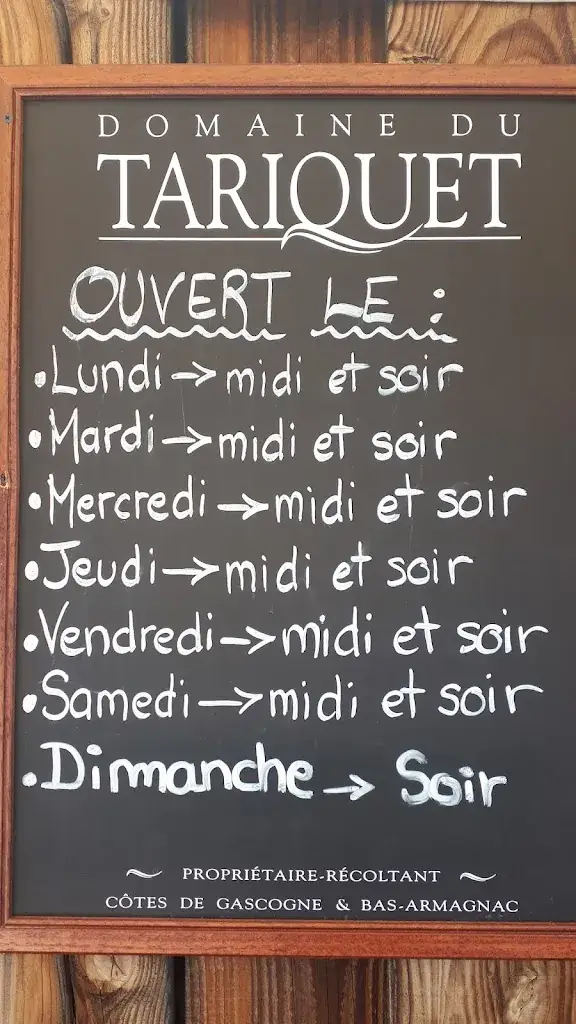 DOMAINE DU
TARIQUET
OUVERT LE :
•Lundi → midi et soir
•Mardi → midi et soir
•Mercredi → midi et soir
•Jeudi → midi et soir
•Vendredi → midi et soir
•Samedi → midi et soir
•Dimanche → Soir
PROPRIÉTAIRE-RÉCOLTANT
CÔTES DE GASCOGNE & BAS-ARMAGNAC